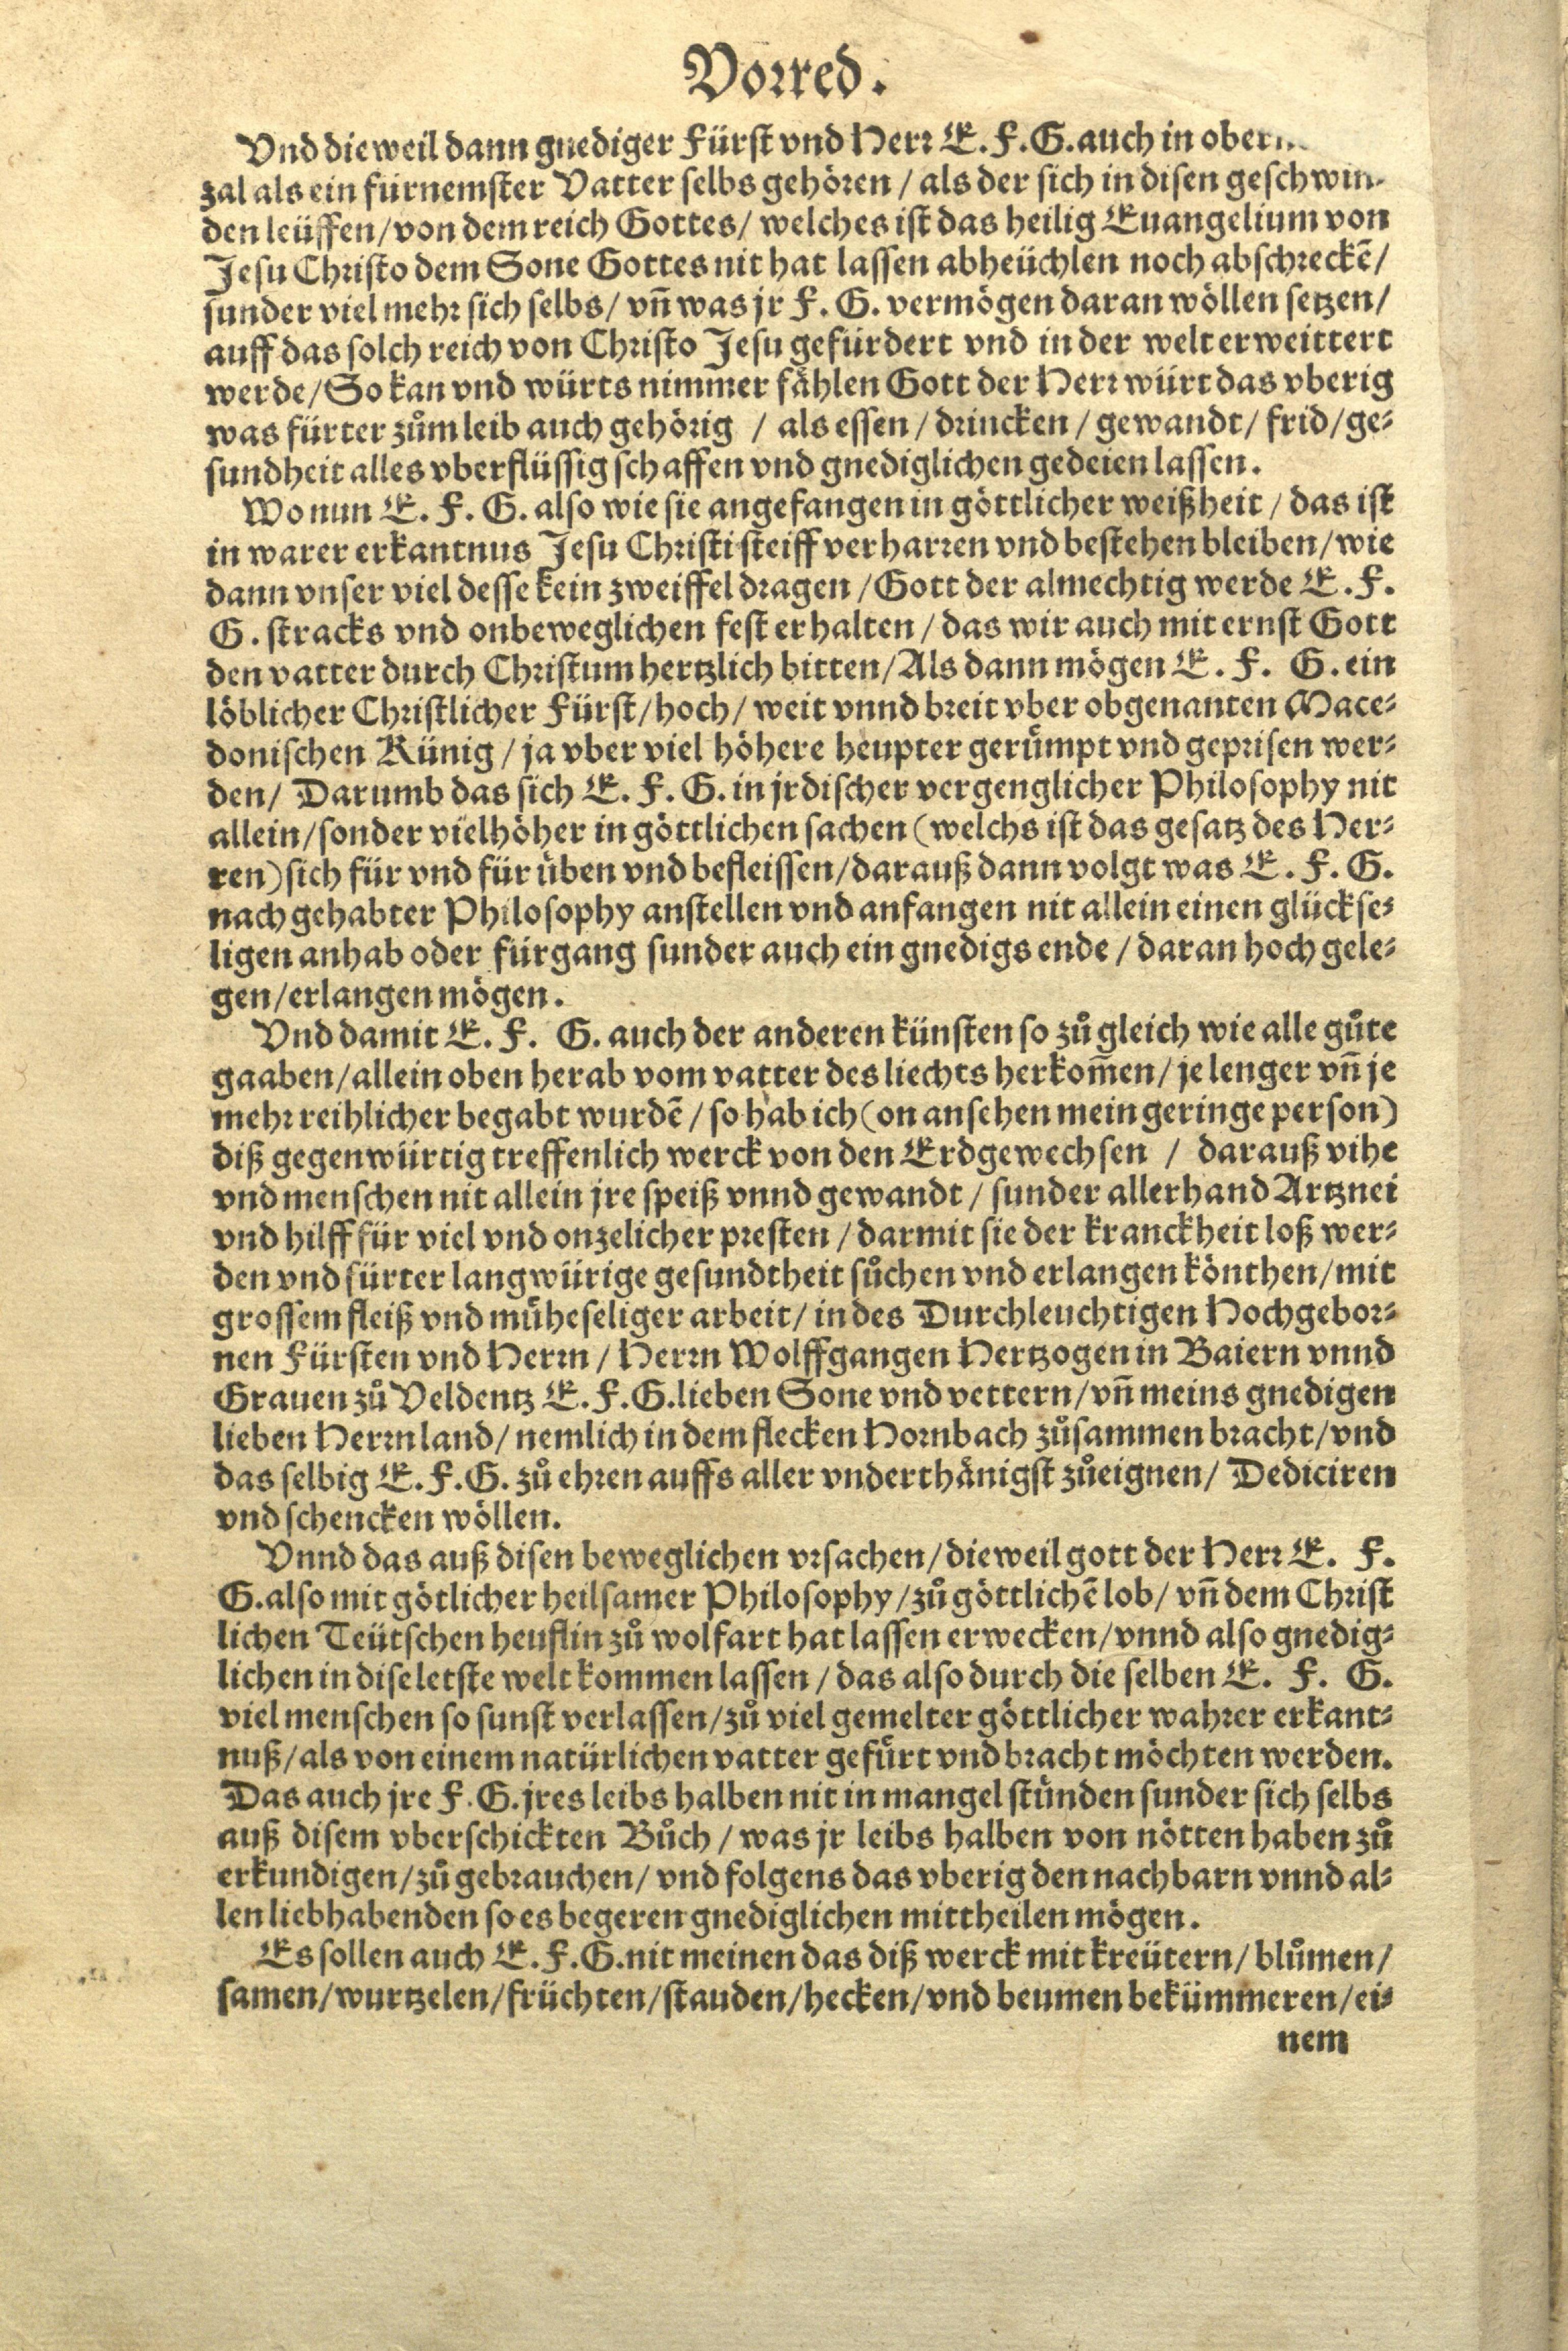 Vorred.
Vnd dieweil dann gnediger Fürst vnd Herr E. F. G. auch in
zal als ein fürnemster Vatter selbs gehören / als der sich in disen geschwin-
den leüffen / von dem reich Gottes / welches ist das heilig Euangelium von
Jesu Christo dem Sone Gottes nit hat lassen abheüchlen noch abschreckē /
sunder viel mehr sich selbs / vñ was jr F. G. vermögen daran wöllen setzen /
auff das solch reich von Christo Jesu gefürdert vnd in der welt erweittert
werde / So kan vnd würts nimmer fählen Gott der Herr würt das vberig
was fürter zům leib auch gehörig / als essen / drincken / gewandt / frid / ge-
sundheit alles vberflüssig schaffen vnd gnediglichen gedeien lassen.
Wo nun E. F. G. also wie sie angefangen in göttlicher weißheit / das ist
in warer erkantnus Jesu Christi steiff verharren vnd bestehen bleiben / wie
dann vnser viel desse kein zweiffel dragen / Gott der almechtig werde E. F.
G. stracks vnd onbeweglichen fest erhalten / das wir auch mit ernst Gott
den vatter durch Christum hertzlich bitten / Als dann mögen E. F. G. ein
löblicher Christlicher Fürst / hoch / weit vnnd breit vber obgenanten Mace-
donischen Künig / ja vber viel höhere heupter gerümpt vnd geprisen wer-
den / Darumb das sich E. F. G. in jrdischer vergenglicher Philosophy nit
allein / sonder vielhöher in göttlichen sachen (welchs ist das gesatz des Her-
ren) sich für vnd für üben vnd befleissen / darauß dann volgt was E. F. G.
nach gehabter Philosophy anstellen vnd anfangen nit allein einen glückse-
ligen anhab oder fürgang sunder auch ein gnedigs ende / daran hoch gele-
gen / erlangen mögen.
Vnd damit E. F. G. auch der anderen künsten so zů gleich wie alle gůte
gaaben / allein oben herab vom vatter des liechts herkom̄en / je lenger vñ je
mehr reihlicher begabt wurdē / so hab ich (on ansehen mein geringe person)
diß gegenwürtig treffenlich werck von den Erdgewechsen / darauß vihe
vnd menschen nit allein jre speiß vnnd gewandt / sunder allerhand Artznei
vnd hilff für viel vnd onzelicher presten / darmit sie der kranckheit loß wer-
den vnd fürter langwürige gesundtheit sůchen vnd erlangen könthen / mit
grossem fleiß vnd müheseliger arbeit / in des Durchleuchtigen Hochgebor-
nen Fürsten vnd Herrn / Herrn Wolffgangen Hertzogen in Baiern vnnd
Grauen zů Veldentz E. F. G. lieben Sone vnd vettern / vñ meins gnedigen
lieben Herrn land / nemlich in dem flecken Hornbach zůsammen bracht / vnd
das selbig E. F. G. zů ehren auffs aller vnderthänigst zůeignen / Dediciren
vnd schencken wöllen.
Vnnd das auß disen beweglichen vrsachen / dieweil gott der Herr E. F.
G. also mit götlicher heilsamer Philosophy / zů göttlichē lob / vñ dem Christ
lichen Teütschen heuflin zů wolfart hat lassen erwecken / vnnd also gnedig-
lichen in dise letste welt kommen lassen / das also durch die selben E. F. G.
viel menschen so sunst verlassen / zů viel gemelter göttlicher wahrer erkant-
nuß / als von einem natürlichen vatter gefürt vnd bracht möchten werden.
Das auch jre F. G. jres leibs halben nit in mangel stünden sunder sich selbs
auß disem vberschickten Bůch / was jr leibs halben von nötten haben zů
erkundigen / zů gebrauchen / vnd folgens das vberig den nachbarn vnnd al-
len liebhabenden so es begeren gnediglichen mittheilen mögen.
Es sollen auch E. F. G. nit meinen das diß werck mit kreütern / blůmen /
samen / wurtzelen / früchten / stauden / hecken / vnd beumen bekümmeren / ei-
nem